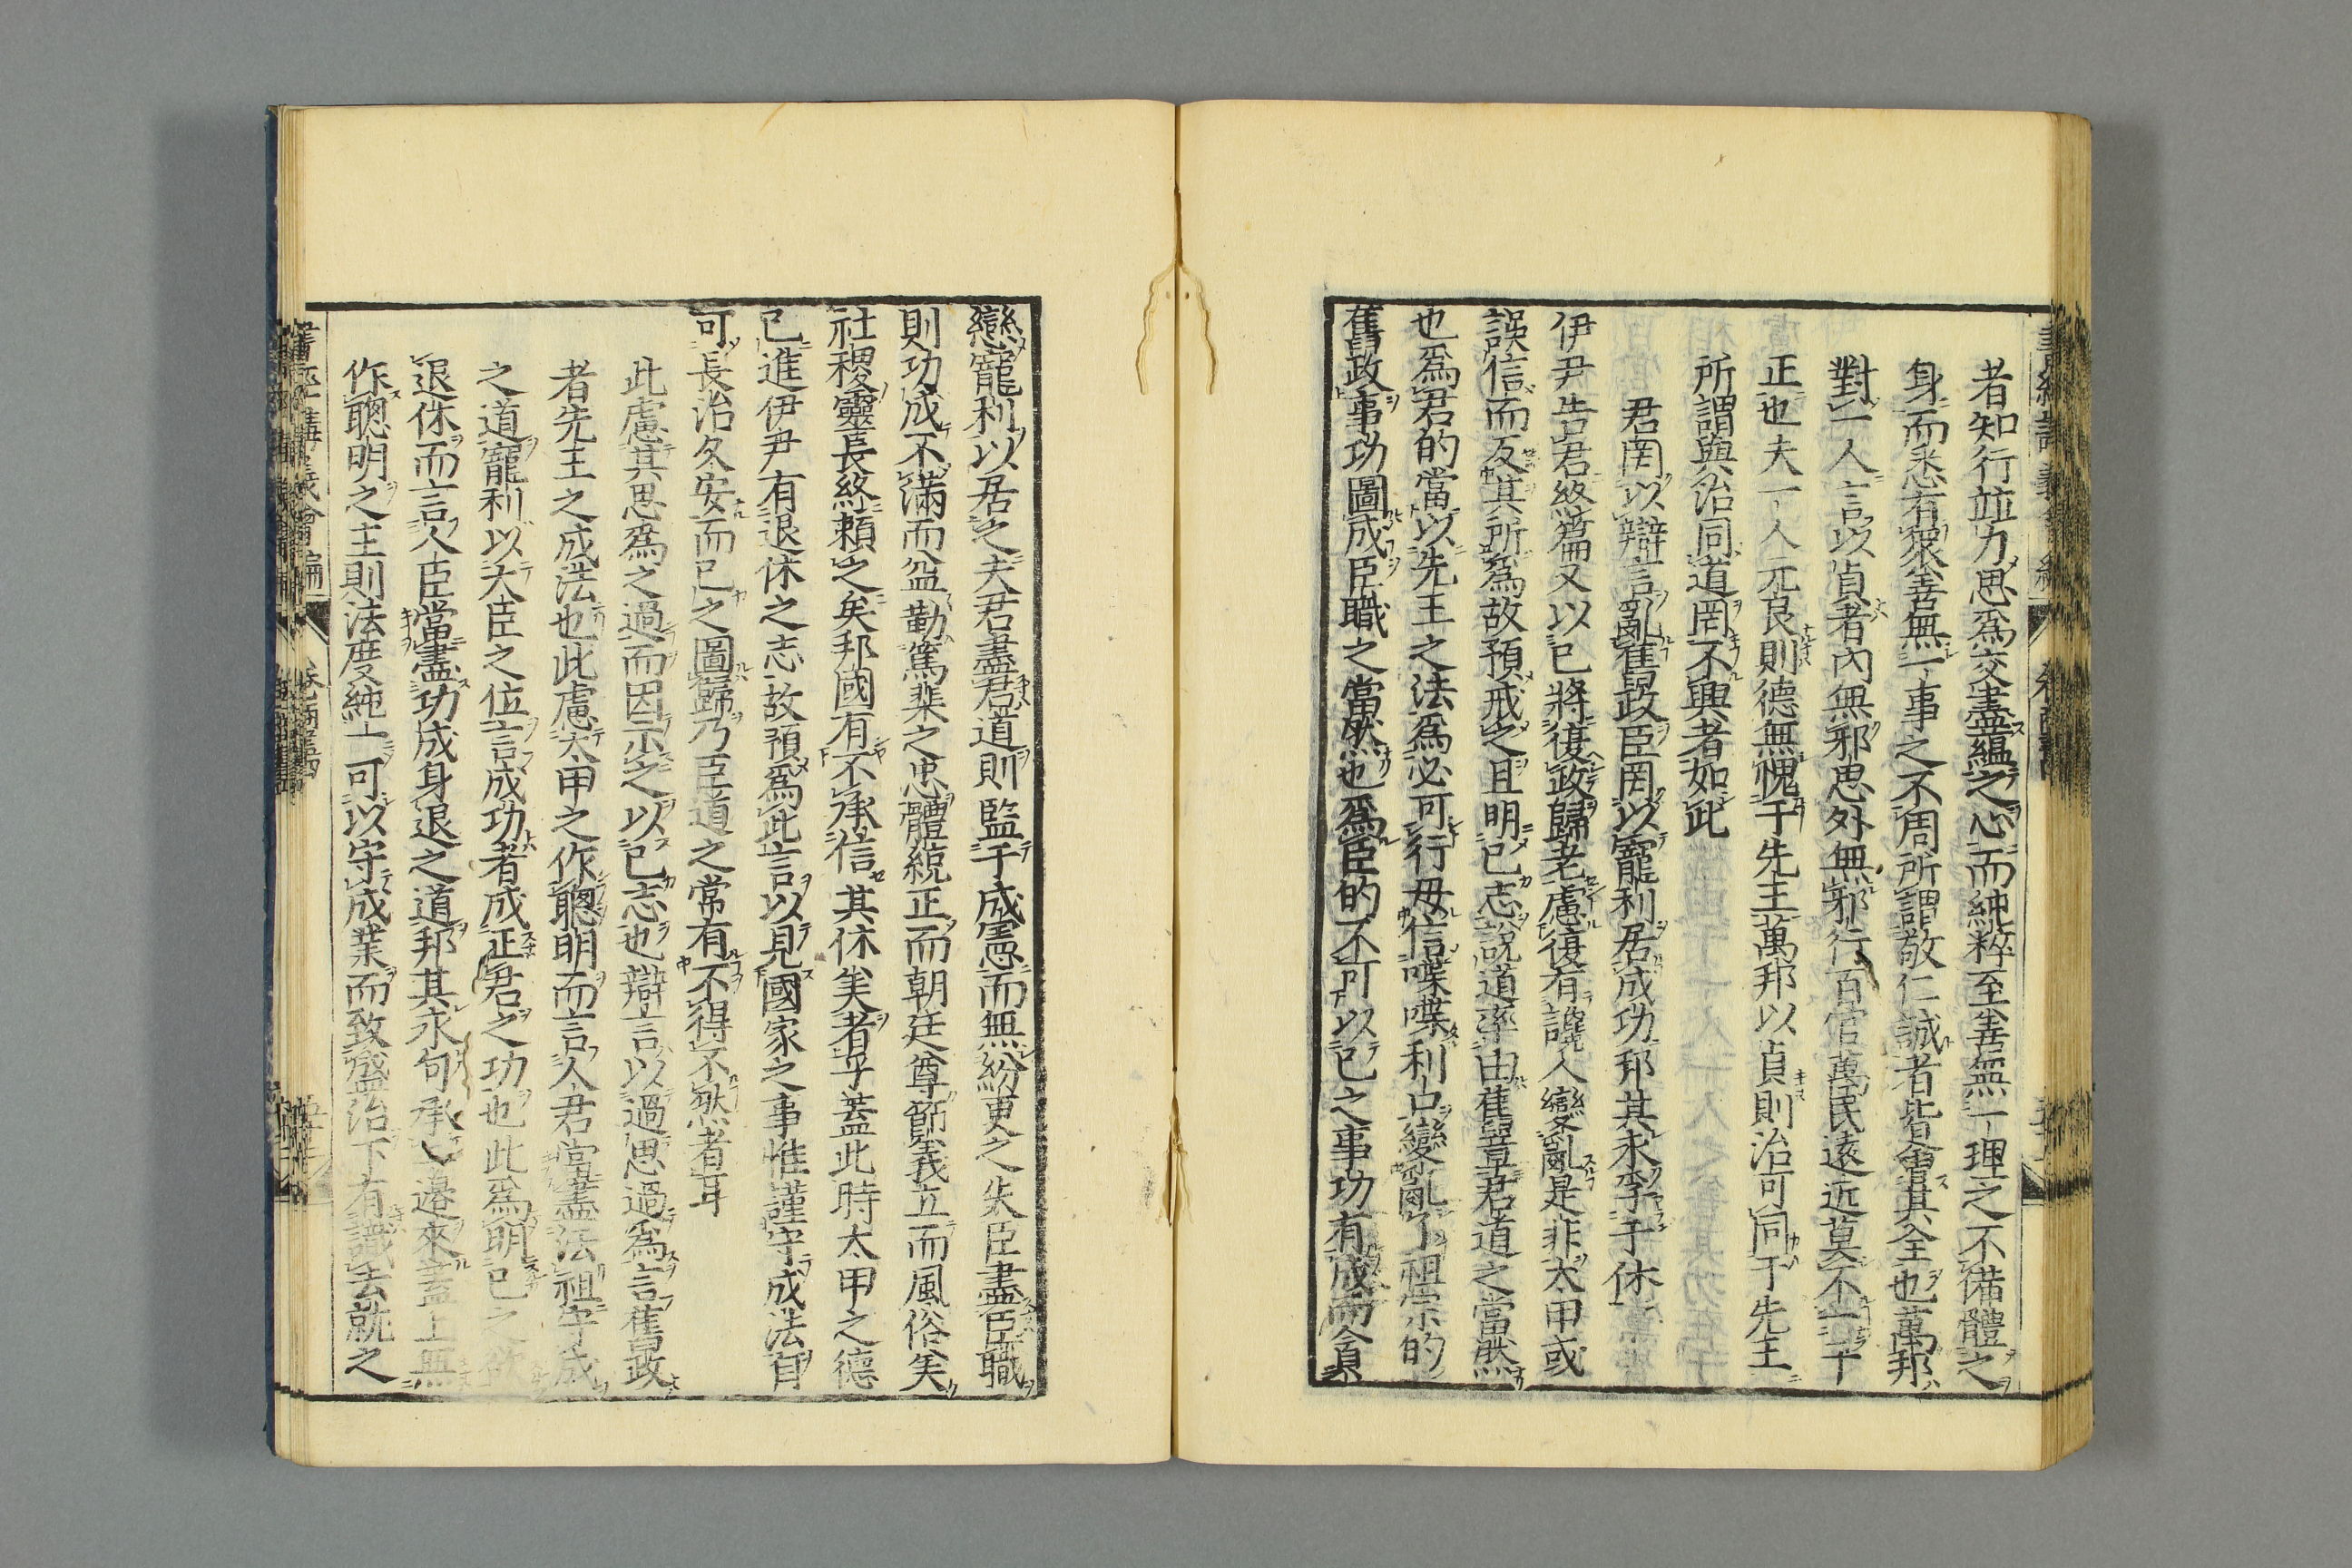 者知行並力思爲交盡緼之心而純粹至善無一理之不備體之
身而悉有衆善無一事之不周所謂敬仁誠者皆會其全也萬邦
對一人言以貞者內無邪思外無邪行百官萬民遠近莫不一于
正也夫一人元良則德無愧于先王萬邦以貞則治可同于先王
所謂與治同道罔不興者如此
君罔以辯言亂舊政臣罔以寵利居成功邦其永孚于休
伊尹告君終篇又以已將復政歸老慮復有讒人變亂是非太甲或
誤信而反其所爲故預戒之且明已志說道率由舊章君道之當然
也爲君的當以先王之法爲必可行毋信喋喋利口變亂了祖宗的
舊政事功圖成臣職之當然也爲臣的不可以已之事功有成而貪
戀寵利以居之夫君盡君道則監于成憲而無紛更之失臣盡臣職
則功成不滿而益勤篤棐之忠體統正而朝廷尊節義立而風俗矣
社稷靈長終賴之矣邦國有不承信其休美者乎蓋此時太甲之德
已進伊尹有退休之志故預爲此言以見國家之事惟謹守成法自
可長治久安而已之圖歸乃臣道之常有不得不然者耳
此慮其思爲之過而因示之以已志也辯言以過思過爲言舊政
者先王之成法也此慮太甲之作聰明而言人君當盡法祖守成
之道寵利以大臣之位言成功者成正君之功也此爲明已之欲
退休而言人臣當盡功成身退之道邦其永句承上邊來蓋上無
作聰明之主則法度純一可以守成業而致盛治下有識去就之
書經講義會編